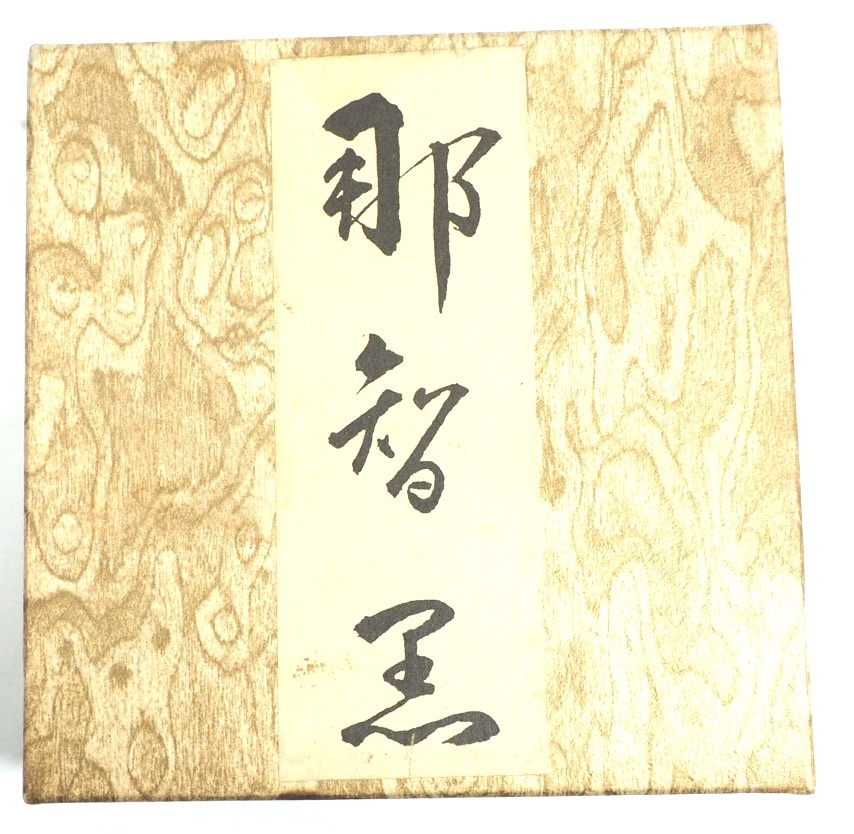 那智黒